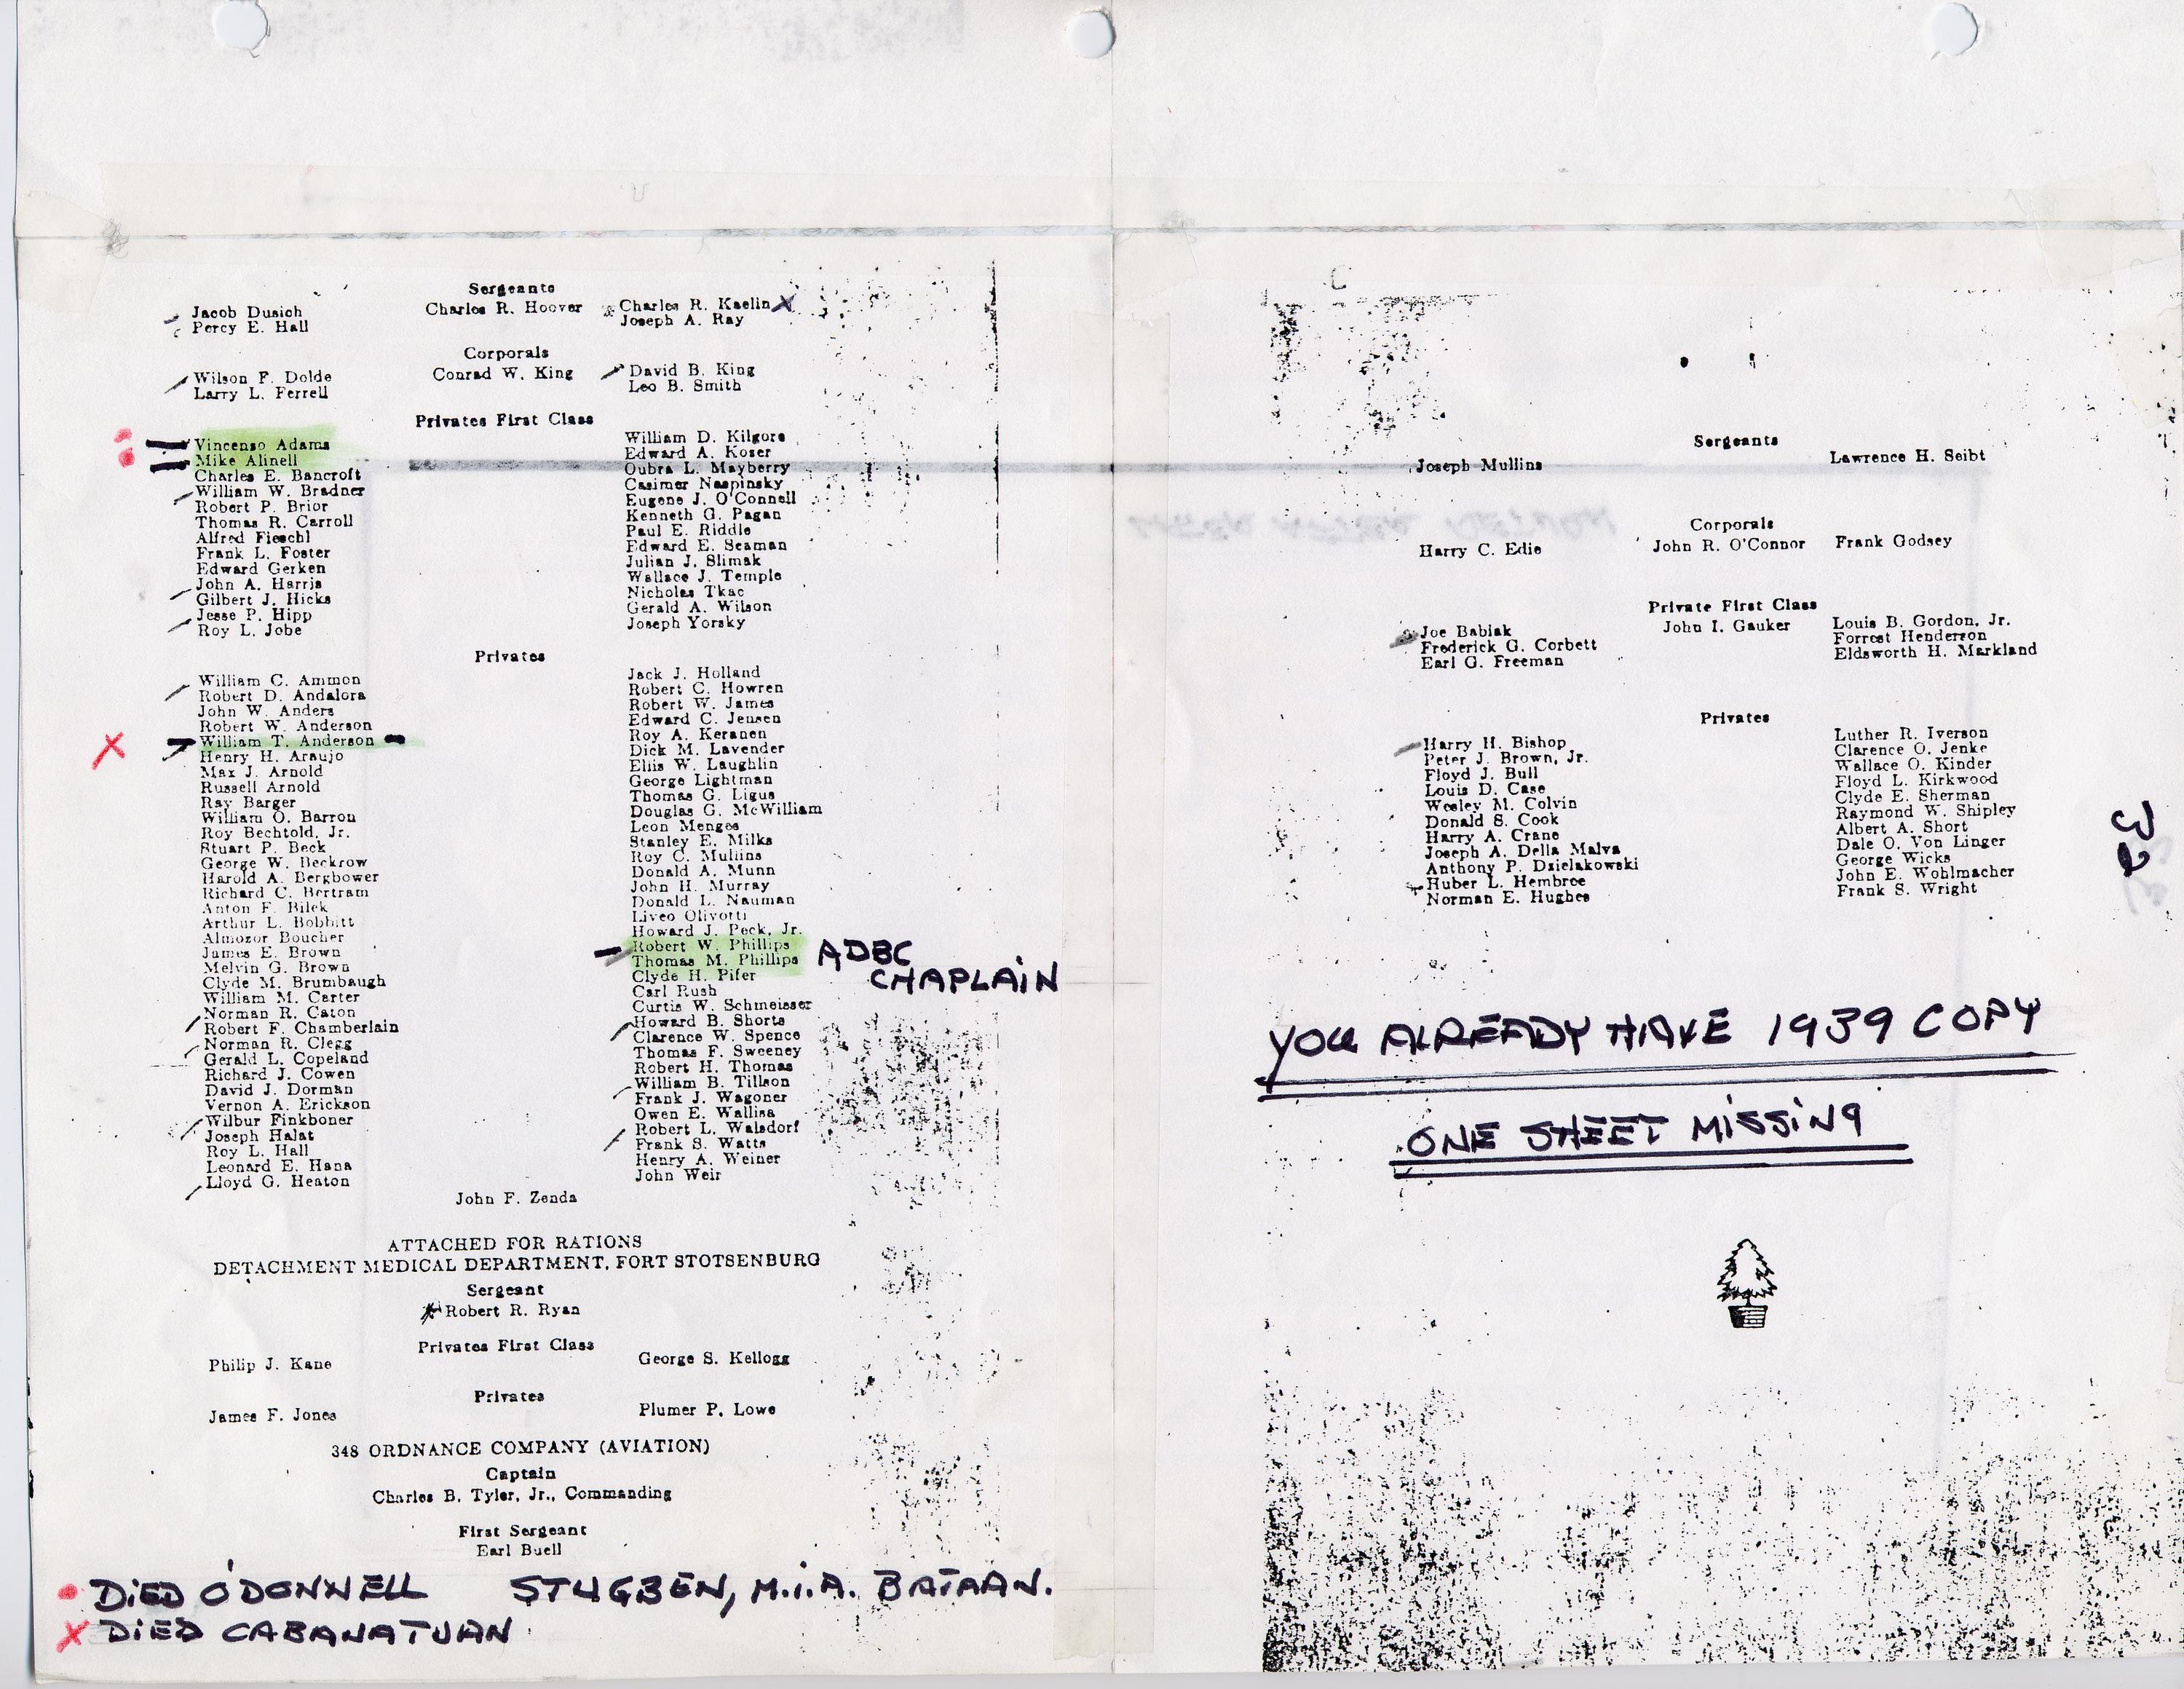 Sergeants
Jacob Dusich
Percy E. Hall
Charles R. Hoover
Charles R. Kaelin X
Joseph A. Ray
Corporals
Wilson F. Dolde
Larry L. Ferrell
Conrad W. King
David B. King
Leo B. Smith
Privates First Class
Vincenso Adams
Mike Alinell
Charles E. Bancroft
William W. Bradner
Robert P. Brior
Thomas R. Carroll
Alfred Fieschl
Frank L. Foster
Edward Gerken
John A. Harris
Gilbert J. Hicks
Jesse P. Hipp
Roy L. Jobe
William D. Kilgore
Edward A. Koser
Oubra L. Mayberry
Casimer Naspinsky
Eugene J. O'Connell
Kenneth G. Pagan
Paul E. Riddle
Edward E. Seaman
Julian J. Slimak
Wallace J. Temple
Nicholas Tkac
Gerald A. Wilson
Joseph Yorsky
Privates
William C. Ammon
Robert D. Andalora
John W. Anders
Robert W. Anderson
X William T. Anderson
Henry H. Araujo
Max J. Arnold
Russell Arnold
Ray Barger
William O. Barron
Roy Bechtold, Jr.
Stuart P. Beck
George W. Beckrow
Harold A. Bergbower
Richard C. Bertram
Anton F. Bilek
Arthur L. Bobbitt
Almozor Boucher
James E. Brown
Melvin G. Brown
Clyde M. Brumbaugh
William M. Carter
Norman R. Caton
Robert F. Chamberlain
Norman R. Clegg
Gerald L. Copeland
Richard J. Cowen
David J. Dorman
Vernon A. Erickson
Wilbur Finkboner
Joseph Halat
Roy L. Hall
Leonard E. Hana
Lloyd G. Heaton
Jack J. Holland
Robert C. Howren
Robert W. James
Edward C. Jensen
Roy A. Keranen
Dick M. Lavender
Ellis W. Laughlin
George Lightman
Thomas G. Ligus
Douglas G. McWilliam
Leon Menges
Stanley E. Milks
Roy C. Mullins
Donald A. Munn
John H. Murray
Donald L. Nauman
Liveo Olivotti
Howard J. Peck, Jr.
Robert W. Phillips
Thomas M. Phillips
ADBC
CHAPLAIN
Clyde H. Pifer
Carl Rush
Curtis W. Schmeisser
Howard B. Shorts
Clarence W. Spence
Thomas F. Sweeney
Robert H. Thomas
William B. Tillson
Frank J. Wagoner
Owen E. Wallisa
Robert L. Walsdorf
Frank S. Watts
Henry A. Weiner
John Weir
John F. Zenda
ATTACHED FOR RATIONS
DETACHMENT MEDICAL DEPARTMENT, FORT STOTSENBURG
Sergeant
Robert R. Ryan
Privates First Class
Philip J. Kane
George S. Kellogg
Privates
James F. Jones
Plumer P. Lowe
348 ORDNANCE COMPANY (AVIATION)
Captain
Charles B. Tyler, Jr., Commanding
First Sergeant
Earl Buell
DIED O'DONNELL
STUGBEN, M.I.A. BATAAN.
X DIED CABANATUAN
Sergeants
Joseph Mullins
Lawrence H. Seibt
Corporals
Harry C. Edie
John R. O'Connor
Frank Godsey
Private First Class
Joe Babiak
Frederick G. Corbett
Earl G. Freeman
John I. Gauker
Louis B. Gordon, Jr.
Forrest Henderson
Eldsworth H. Markland
Privates
Harry H. Bishop
Peter J. Brown, Jr.
Floyd J. Bull
Louis D. Case
Wesley M. Colvin
Donald S. Cook
Harry A. Crane
Joseph A. Della Malva
Anthony P. Dzielakowski
Huber L. Hembree
Norman E. Hughes
Luther R. Iverson
Clarence O. Jenke
Wallace O. Kinder
Floyd L. Kirkwood
Clyde E. Sherman
Raymond W. Shipley
Albert A. Short
Dale O. Von Linger
George Wicks
John E. Wohlmacher
Frank S. Wright
32
YOU ALREADY HAVE 1939 COPY
ONE SHEET MISSING